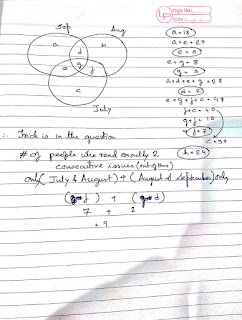 Page No.:
Date:
Sep
Aug
a
b
d
g
e
f
c
July
a=18
a+e=23
e=5
e+g=8
g=3
a+d+e+g=28
d=2
e+g+f+c=48
f+c=40
g+f=10
f=7
c=33
h=24
∴ Trick is in the question
# of people who read exactly 2
consecutive issues (out of three)
only (July & August) + (August & September) only
7 + 2
= 9